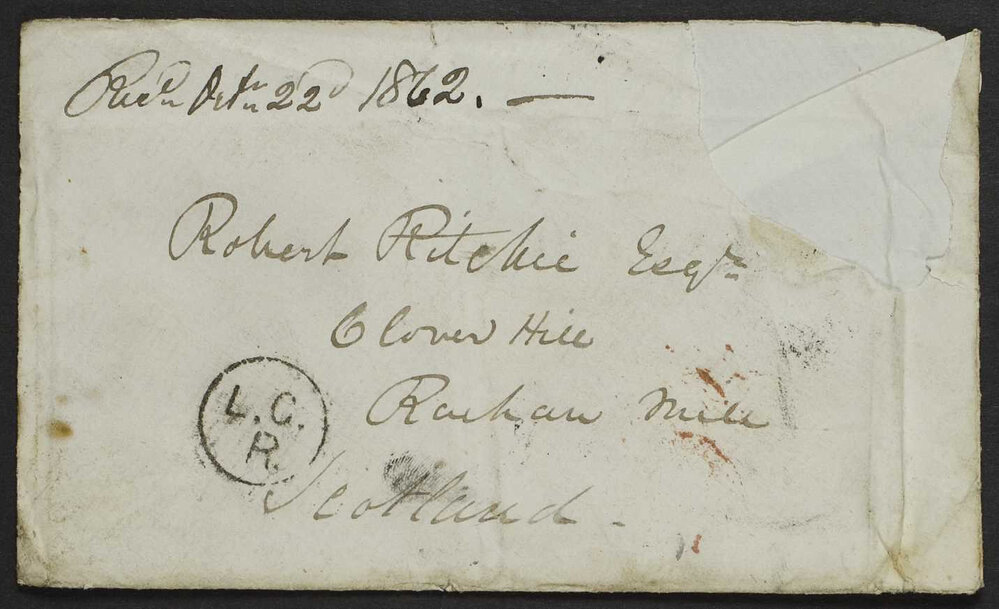 Rec'd Octr 22d 1862. —
Robert Ritchie Esqre
Clover Hill
Rachan Mill
Scotland -
L.C.
R.